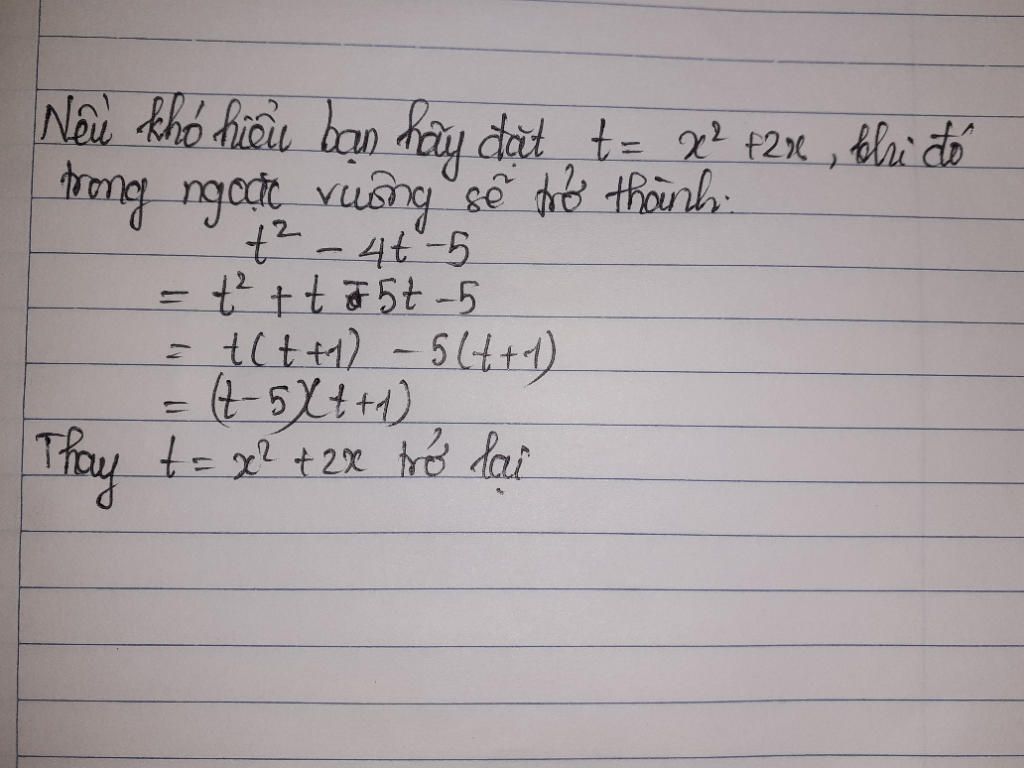 Nếu khó hiểu bạn hãy đặt t = x² + 2x, khi đó
trong ngoặc vuông sẽ trở thành:
t² - 4t - 5
= t² + t - 5t - 5
= t(t+1) - 5(t+1)
= (t-5)(t+1)
Thay t = x² + 2x trở lại